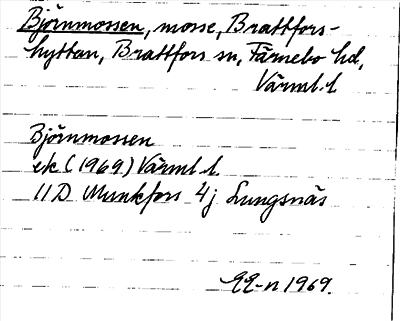 Björnmossen, mosse, Brattfors-
hyttan, Brattfors sn, Färnebo hd,
Värml. l
Björnmossen
ek (1969) Värml l.
11D Munkfors 4j Lungsnäs
EE-n 1969.